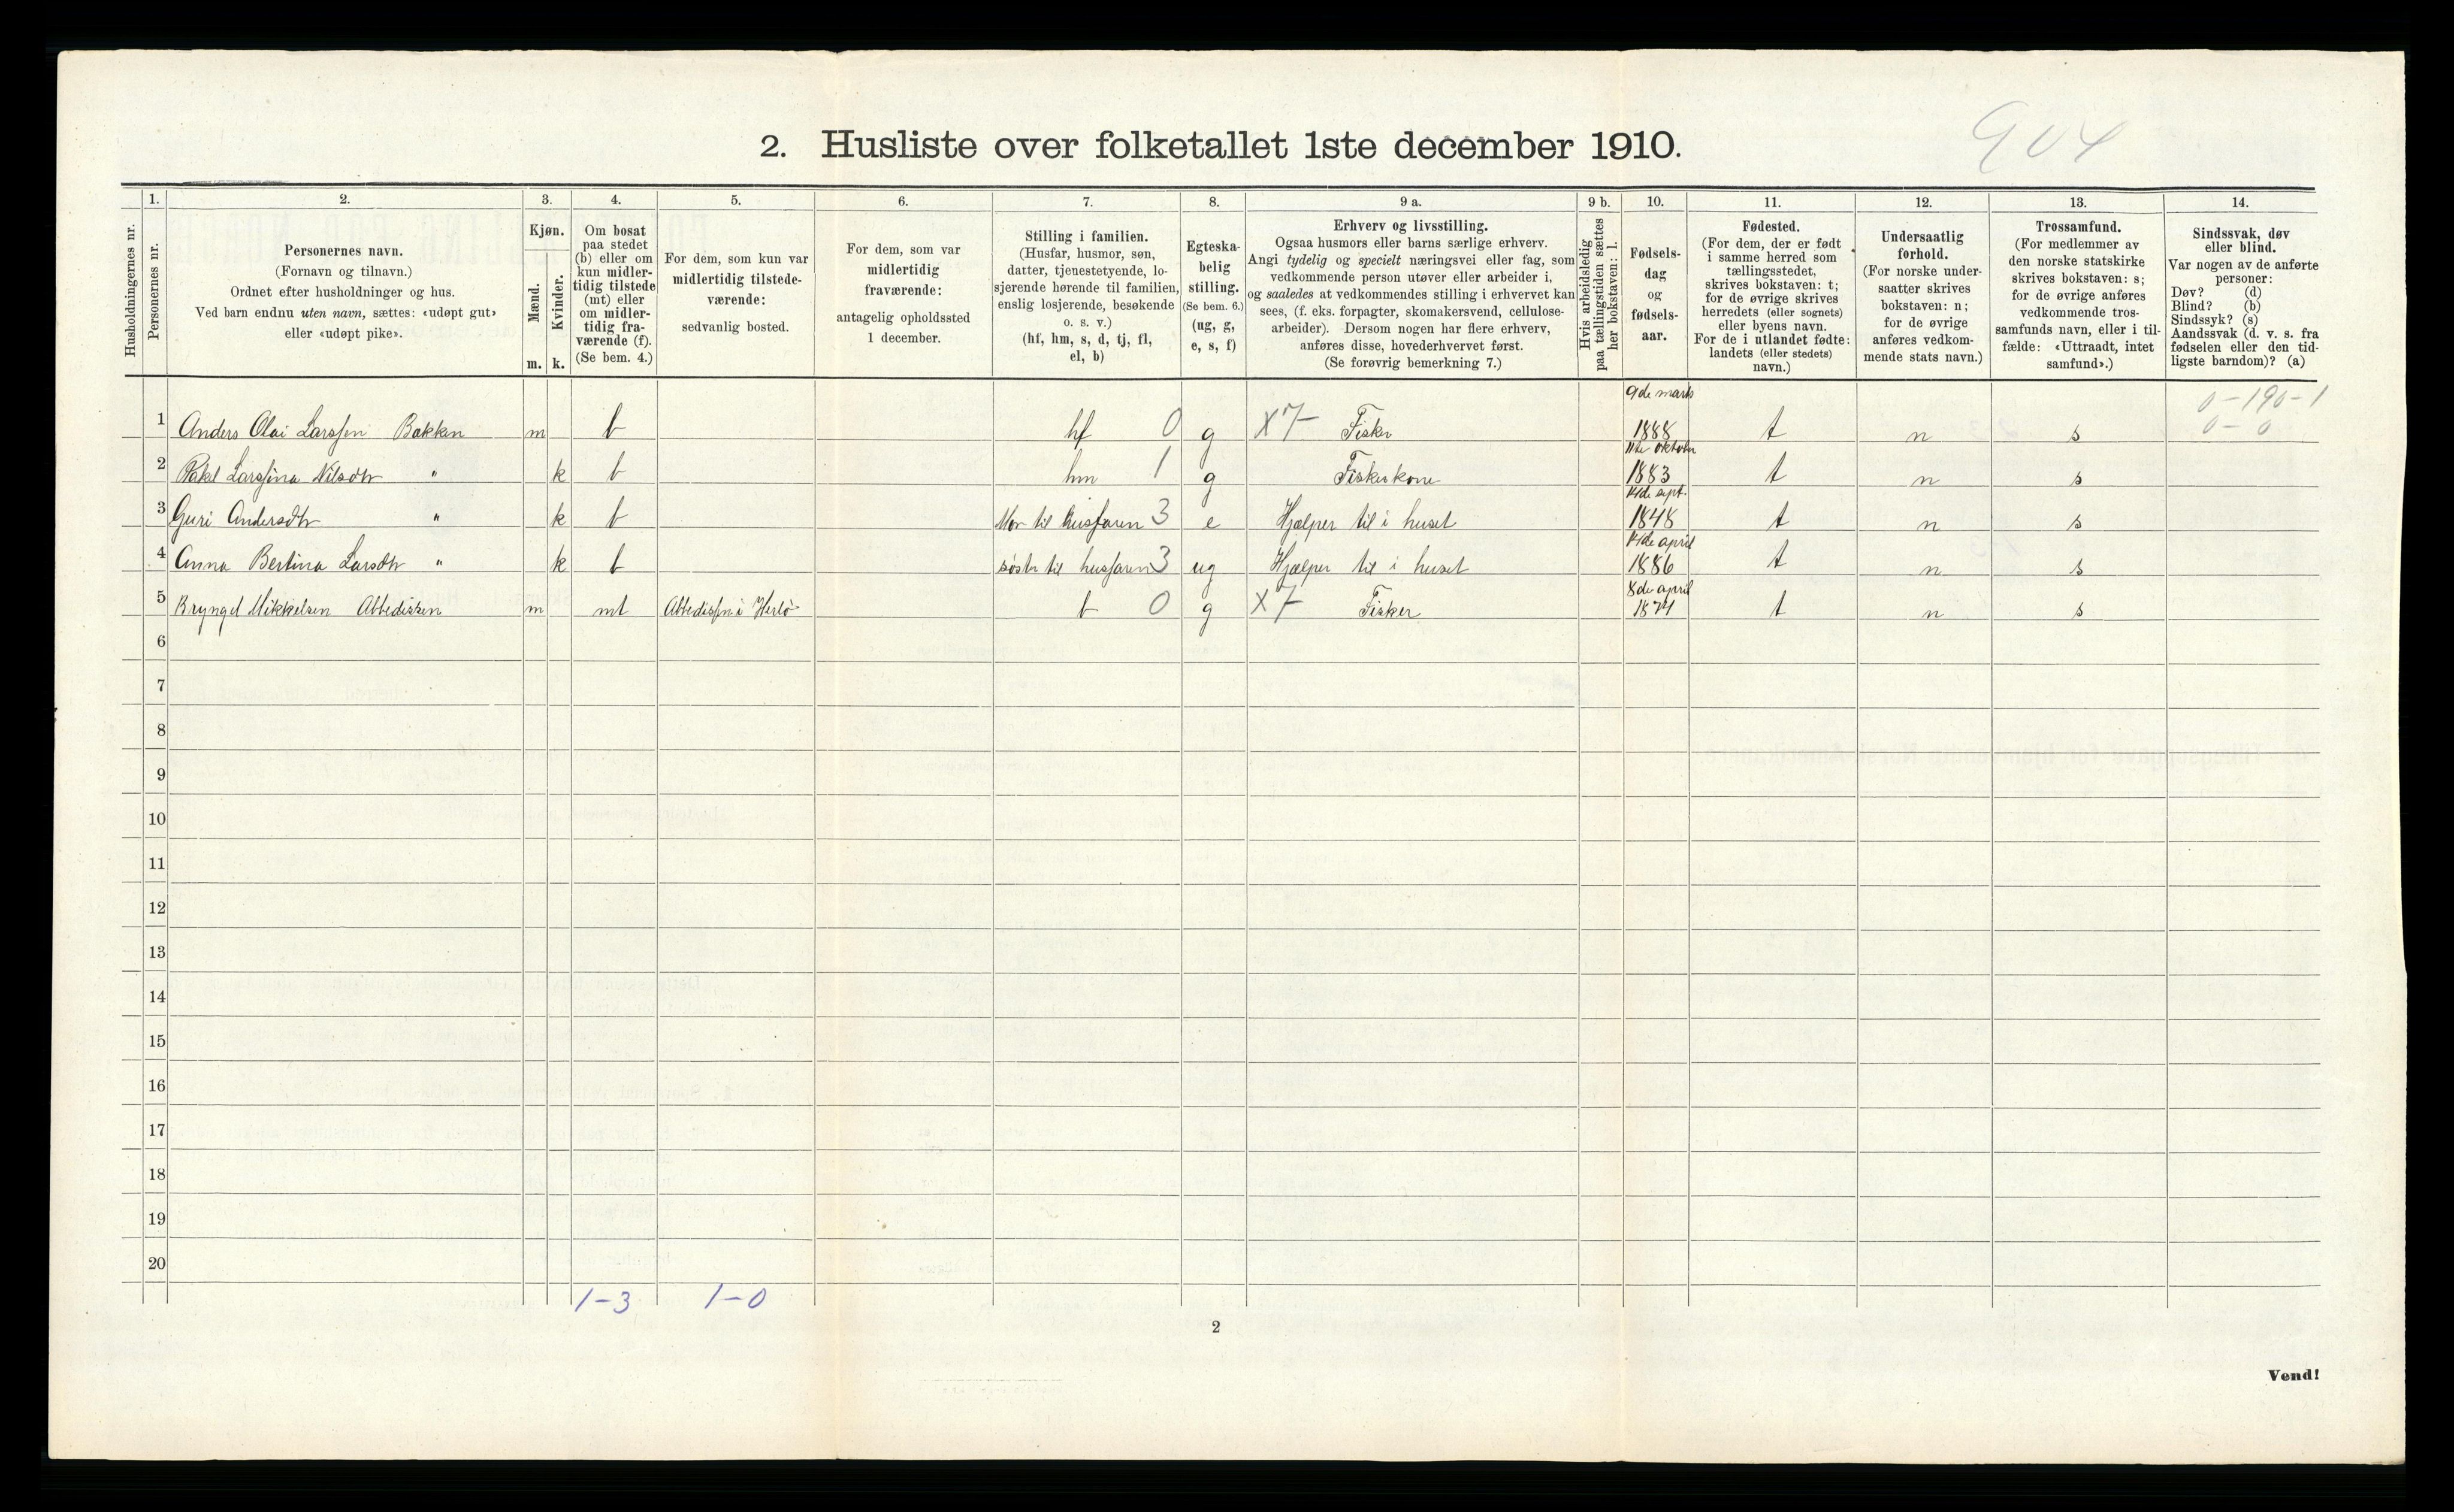 904
2. Husliste over folketallet 1ste december 1910.
Husholdningernes nr.
1.
Personernes nr.
2.
Personernes navn.
(Fornavn og tilnavn.)
Ordnet efter husholdninger og hus.
Ved barn endnu uten navn, sættes: «udøpt gut»
eller «udøpt pike».
3.
Kjøn.
Mænd.
Kvinder.
m. k.
4.
Om bosat
paa stedet
(b) eller om
kun midler-
tidig tilstede
(mt) eller
om midler-
tidig fra-
værende (f).
(Se bem. 4.)
5.
For dem, som kun var
midlertidig tilstede-
værende:
sedvanlig bosted.
6.
For dem, som var
midlertidig
fraværende:
antagelig opholdssted
1 december.
7.
Stilling i familien.
(Husfar, husmor, søn,
datter, tjenestetyende, lo-
sjerende hørende til familien,
enslig losjerende, besøkende
o. s. v.)
(hf, hm, s, d, tj, fl,
el, b)
8.
Egteska-
belig
stilling.
(Se bem. 6.)
(ug, g,
e, s, f)
9 a.
Erhverv og livsstilling.
Ogsaa husmors eller barns særlige erhverv.
Angi tydelig og specielt næringsvei eller fag, som
vedkommende person utøver eller arbeider i,
og saaledes at vedkommendes stilling i erhvervet kan
sees, (f. eks. forpagter, skomakersvend, cellulose-
arbeider). Dersom nogen har flere erhverv,
anføres disse, hovederhvervet først.
(Se forøvrig bemerkning 7.)
9 b.
Hvis arbeidsledig
paa tællingstiden sættes
her bokstaven: l.
10.
Fødsels-
dag
og
fødsels-
aar.
11.
Fødested.
(For dem, der er født
i samme herred som
tællingsstedet,
skrives bokstaven: t;
for de øvrige skrives
herredets (eller sognets)
eller byens navn.
For de i utlandet fødte:
landets (eller stedets)
navn.)
12.
Undersaatlig
forhold.
(For norske under-
saatter skrives
bokstaven: n;
for de øvrige
anføres vedkom-
mende stats navn.)
13.
Trossamfund.
(For medlemmer av
den norske statskirke
skrives bokstaven: s;
for de øvrige anføres
vedkommende tros-
samfunds navn, eller i til-
fælde: «Uttraadt, intet
samfund».)
14.
Sindssvak, døv
eller blind.
Var nogen av de anførte
personer:
Døv? (d)
Blind? (b)
Sindssyk? (s)
Aandssvak (d. v. s. fra
fødselen eller den tid-
ligste barndom)? (a)
9de marts 0-190-1
1 Anders Olai Larssen Bakken m b hf 0 g X7- Fisker 1888 t n s 0-0
11te oktober
2 Rakel Larssina Nilsdtr " k b hm 1 g Fiskerkone 1883 t n s
14de sept.
3 Guri Andersdtr " k b Mor til husfaren 3 e Hjælper til i huset 1848 t n s
14de april
4 Anna Bertina Larsdtr " k b søster til husfaren 3 ug Hjælper til i huset 1886 t n s
8de april
5 Bryngel Mikkelsen Abbedissen m mt Abbedissen i Herlø b 0 g X7- Fisker 1871 t n s
6
7
8
9
10
11
12
13
14
15
16
17
18
19
20
1-3 1-0
2
Vend!